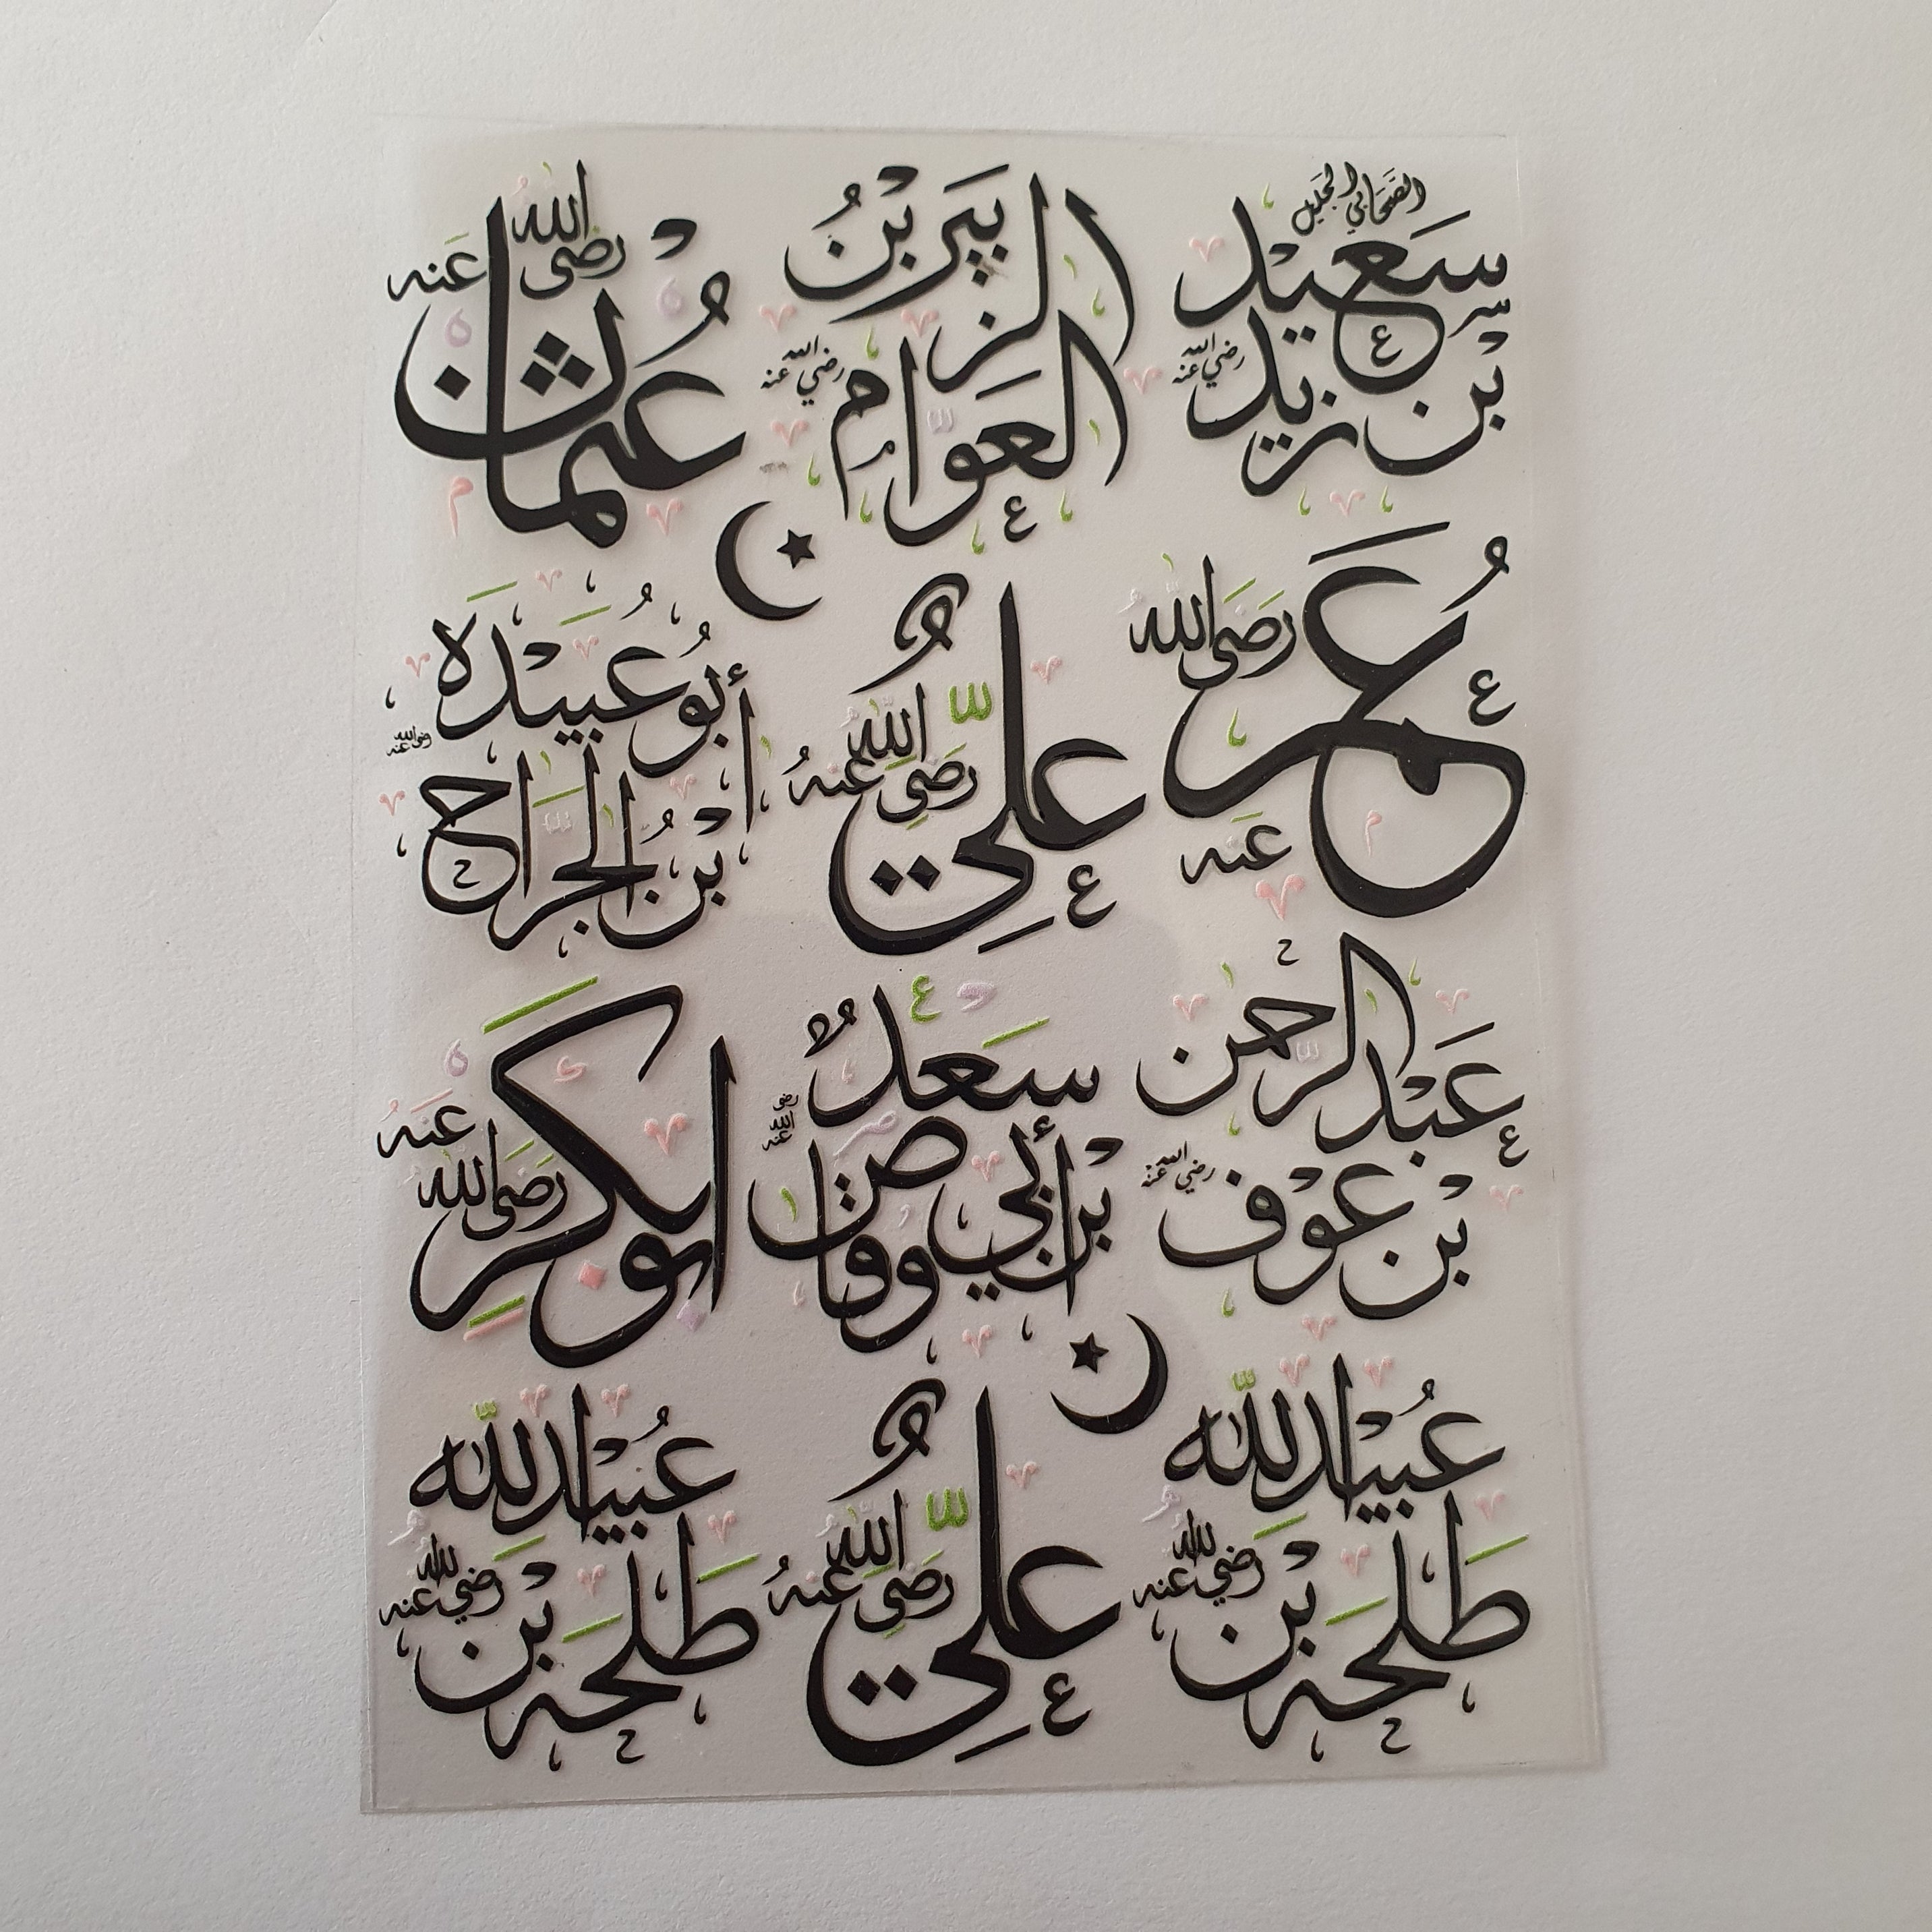 الصَّحَابِي الجَلِيل
سَعِيد
بْن زيد
رضي الله عنه
الزبَير بْنُ
العَوَّامِ
رضي الله عنه
عُثمان
رضى الله عَنه
عُمَر
رَضَى الله
عَنه
عَلِيٌّ
رَضِي الله عَنهُ
أبُو عُبَيْدَة
ابْنُ الجَرَّاح
رضى الله عنه
عَبْدالرَّحمن
بْن عَوْف
رضي الله عنه
سَعدٌ
بْن أبي وقاص
رضى الله عنه
ابوبَكرِ
رَضَى الله
عَنهُ
عُبَيْدالله
طَلحَه بْن
رَضي الله عنه
عَلِيٌّ
رَضِي الله عَنهُ
عُبَيْدالله
طَلحَه بْن
رَضي الله عنه